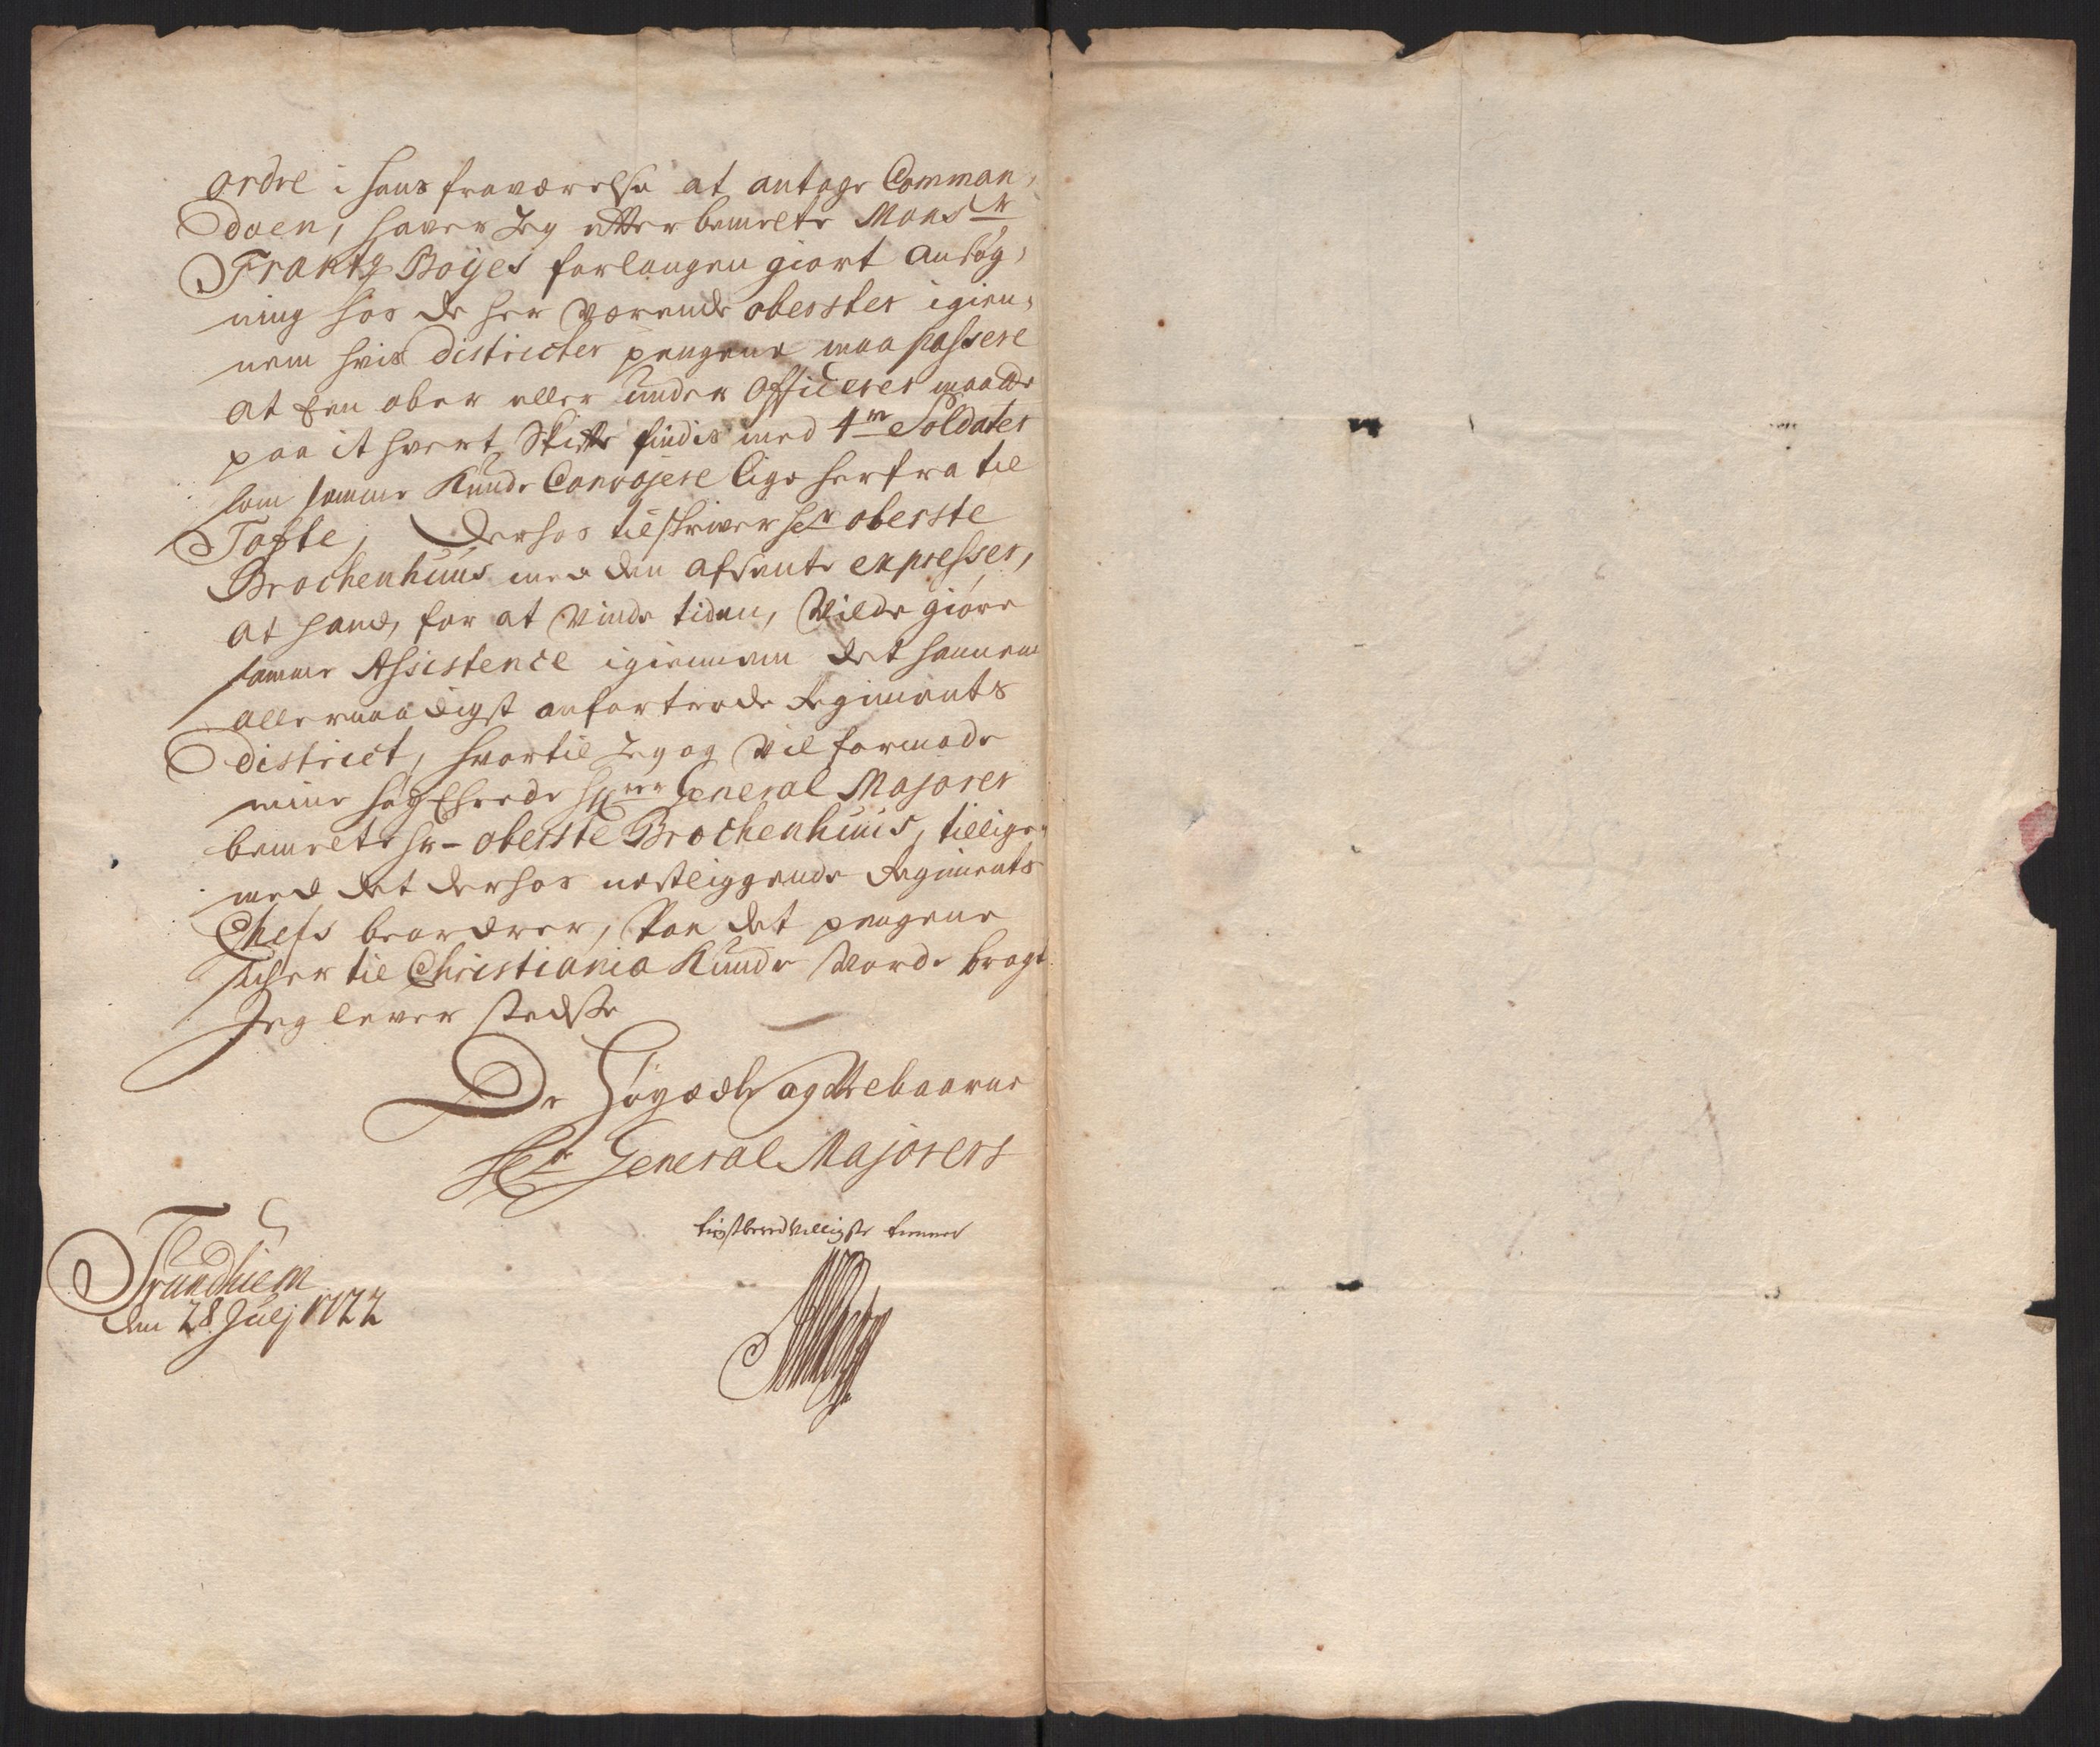 ordre i hans fraværelse at antage Comman,
doen, haver Jeg effter bemelte Mons:r
Frantz Boyes forlangen giort ansøg,
ning hos de her værende oberster igien,
nem hvis districter pengene maa passere
at Een ober eller under Officerer maatte
paa it hvert Skiffte findis med 4re Soldater
som samme Kunde Convojere lige herfra til
Tofte, Derhos tilskriver Hr oberste
Brochenhuus med den afsente expresser,
at hand, for at Vinde tiden, Vilde giøre
samme Assistence igiennem det hannem
allernaadigst anfortroede Regiments
district, hvortil Jeg og Vil formode
mine høyEhrede Hrer General Majorer
bemelte Hr oberste Brochenhuus, tillige,
med det derhos nestliggende Regiments
Chefs beordrer, Paa det pengene
sicher til Christiania Kunde Vorde bragt.
Jeg lever stedsse
De Høyædle og Velbaarne
Hr General Majorers
tienstberedvilligste tienner
Trundhiem
den 28 Julj 1722